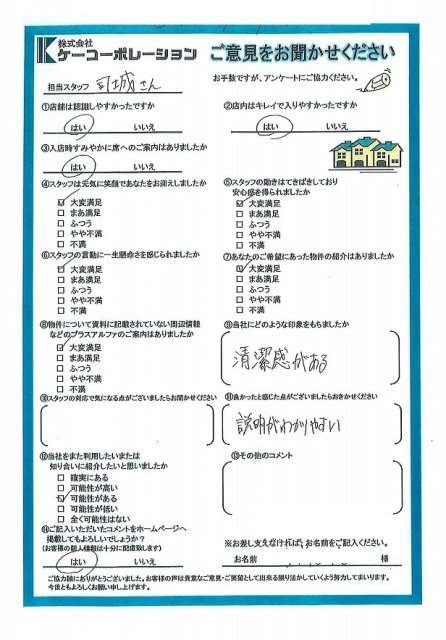 株式会社
K ケーコーポレーション
ご意見をお聞かせください
担当スタッフ 司城さん
お手数ですが、アンケートにご協力ください。
①店舗は認識しやすかったですか
はい いいえ
②店内はキレイで入りやすかったですか
はい いいえ
③入店時すみやかに席へのご案内はありましたか
はい いいえ
④スタッフは元気に笑顔であなたをお迎えしましたか
☑ 大変満足
□ まあ満足
□ ふつう
□ やや不満
□ 不満
⑤スタッフの動きはてきぱきしており
安心感を得られましたか
☑ 大変満足
□ まあ満足
□ ふつう
□ やや不満
□ 不満
⑥スタッフの言動に一生懸命さを感じられましたか
☑ 大変満足
□ まあ満足
□ ふつう
□ やや不満
□ 不満
⑦あなたのご希望にあった物件の紹介はありましたか
☑ 大変満足
□ まあ満足
□ ふつう
□ やや不満
□ 不満
⑧物件について資料に記載されていない周辺情報
などのプラスアルファのご案内はありましたか
☑ 大変満足
□ まあ満足
□ ふつう
□ やや不満
□ 不満
当社にどのような印象をもちましたか
清潔感がある
スタッフの対応で気になる点がございましたらお聞かせください
⑪良かったと感じた点がございましたらお書きください
説明がわかりやすい
⑫当社をまた利用したいまたは
知り合いに紹介したいと思いましたか
□ 確実にある
□ 可能性が高い
☑ 可能性がある
□ 可能性が低い
□ 全く可能性はない
⑬その他のコメント
⑭ご記入いただいたコメントをホームページへ
掲載してもよろしいでしょうか?
(お客様の個人情報は十分に配慮致します)
はい いいえ
※お差し支えなければ、お名前をご記入ください。
お名前 様
ご協力誠にありがとうございました。お客様の声は貴重なご意見・ご要望として出来る限り活かしていくよう努力してまいります。
今後ともよろしくお願い申し上げます。